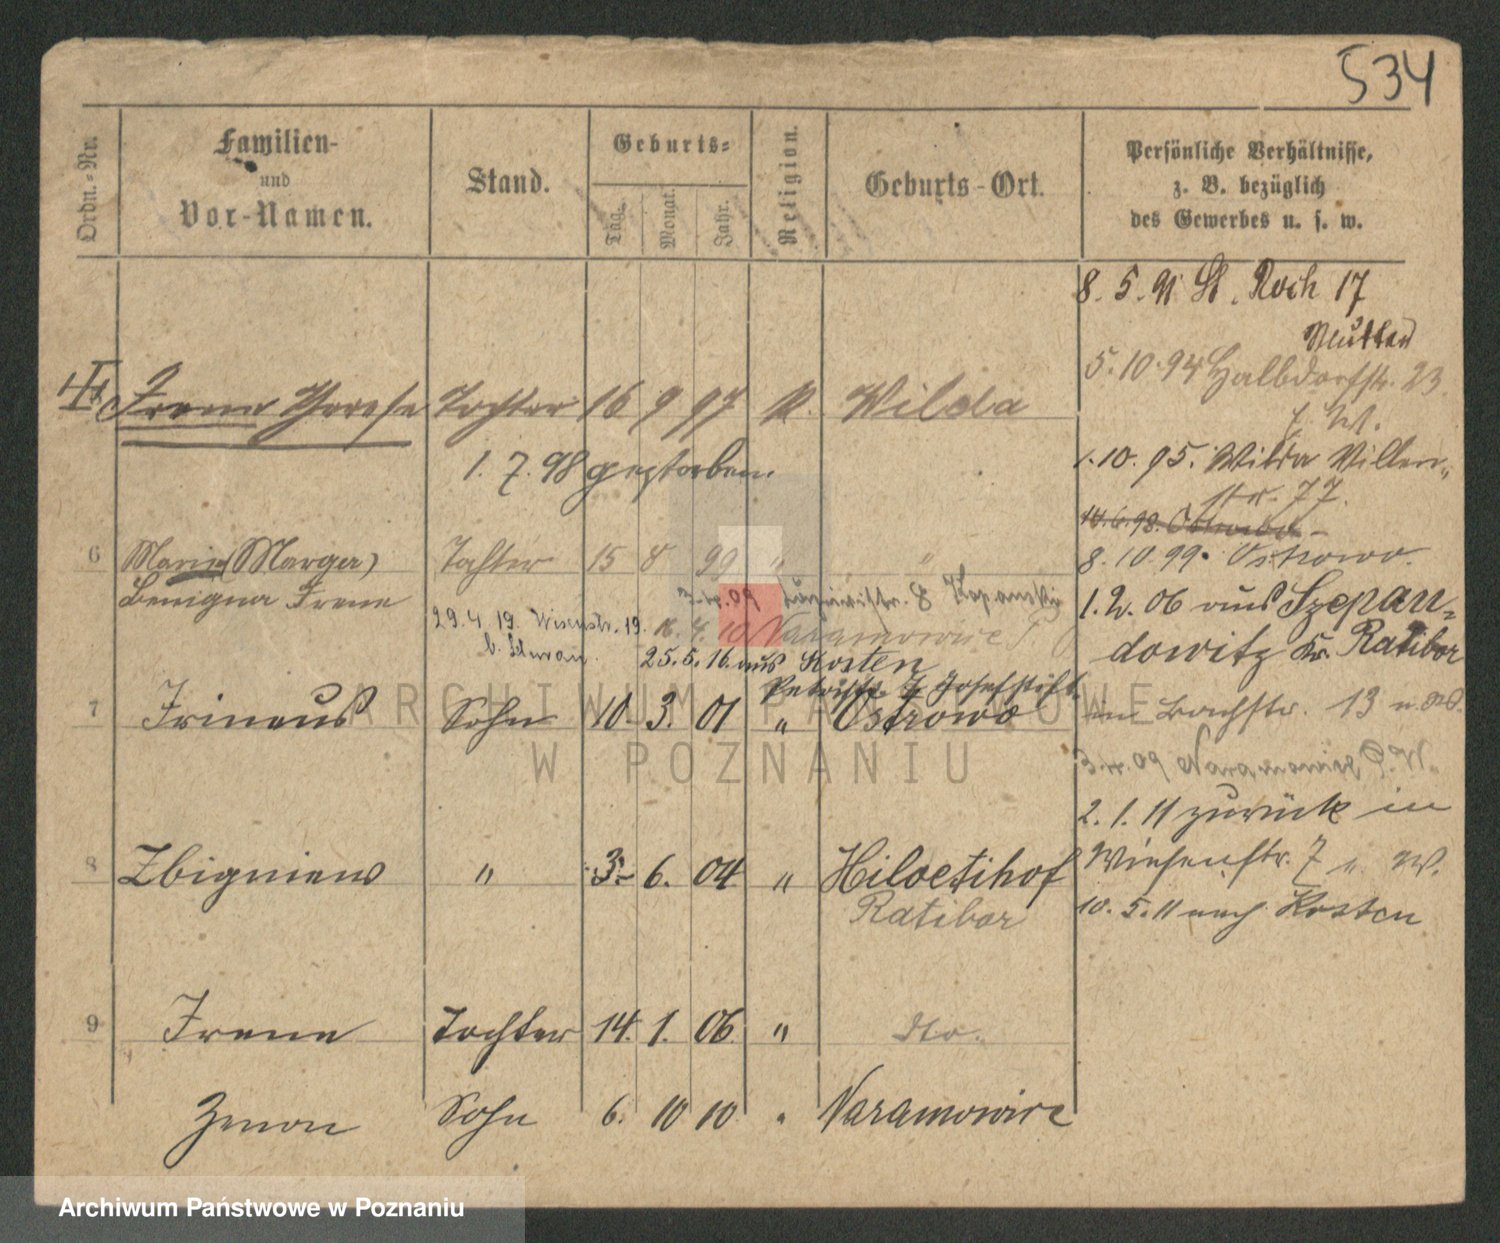 534
Ordn.-Nr.
Familien-
und
Vor-Namen.
Stand.
Geburts-
Tag.
Monat.
Jahr.
Religion.
Geburts-Ort.
Persönliche Verhältnisse,
z. B. bezüglich
des Gewerbes u. s. w.
8. 5. 91 St. Roch 17
Mutter
5. 10. 94 Halbdorfstr. 23
Irene Therese Tochter 16 9 97 K. Wilda
1. 10. 95. Wilda Villen-
str. 77.
1. 7. 98 gestorben.
8. 10. 99. Ostrowo.
6 Marie (Marga) Tochter 15 8 99 " "
Benigna Irene
1. 2. 06 aus Szepan-
dowitz Kr. Ratibor
29. 4. 19. Wiesenstr. 19.
16. 4. 10 Naramowice
25. 5. 16. aus Kosten
Petristr. 7 Josefstift
7 Irineus Sohn 10. 3. 01 " Ostrowo
in Bachstr. 13
3. 4. 09 Naramowice
2. 1. 11 zurück in
Wiesenstr. 7
10. 5. 11 nach Kosten
8 Zbigniew " 3. 6. 04 " Hiloetihof
Ratibor
9 Irene Tochter 14. 1. 06. " dto.
Zenon Sohn 6. 10 10 " Naramowice
ARCHIWUM PAŃSTWOWE
W POZNANIU
Archiwum Państwowe w Poznaniu